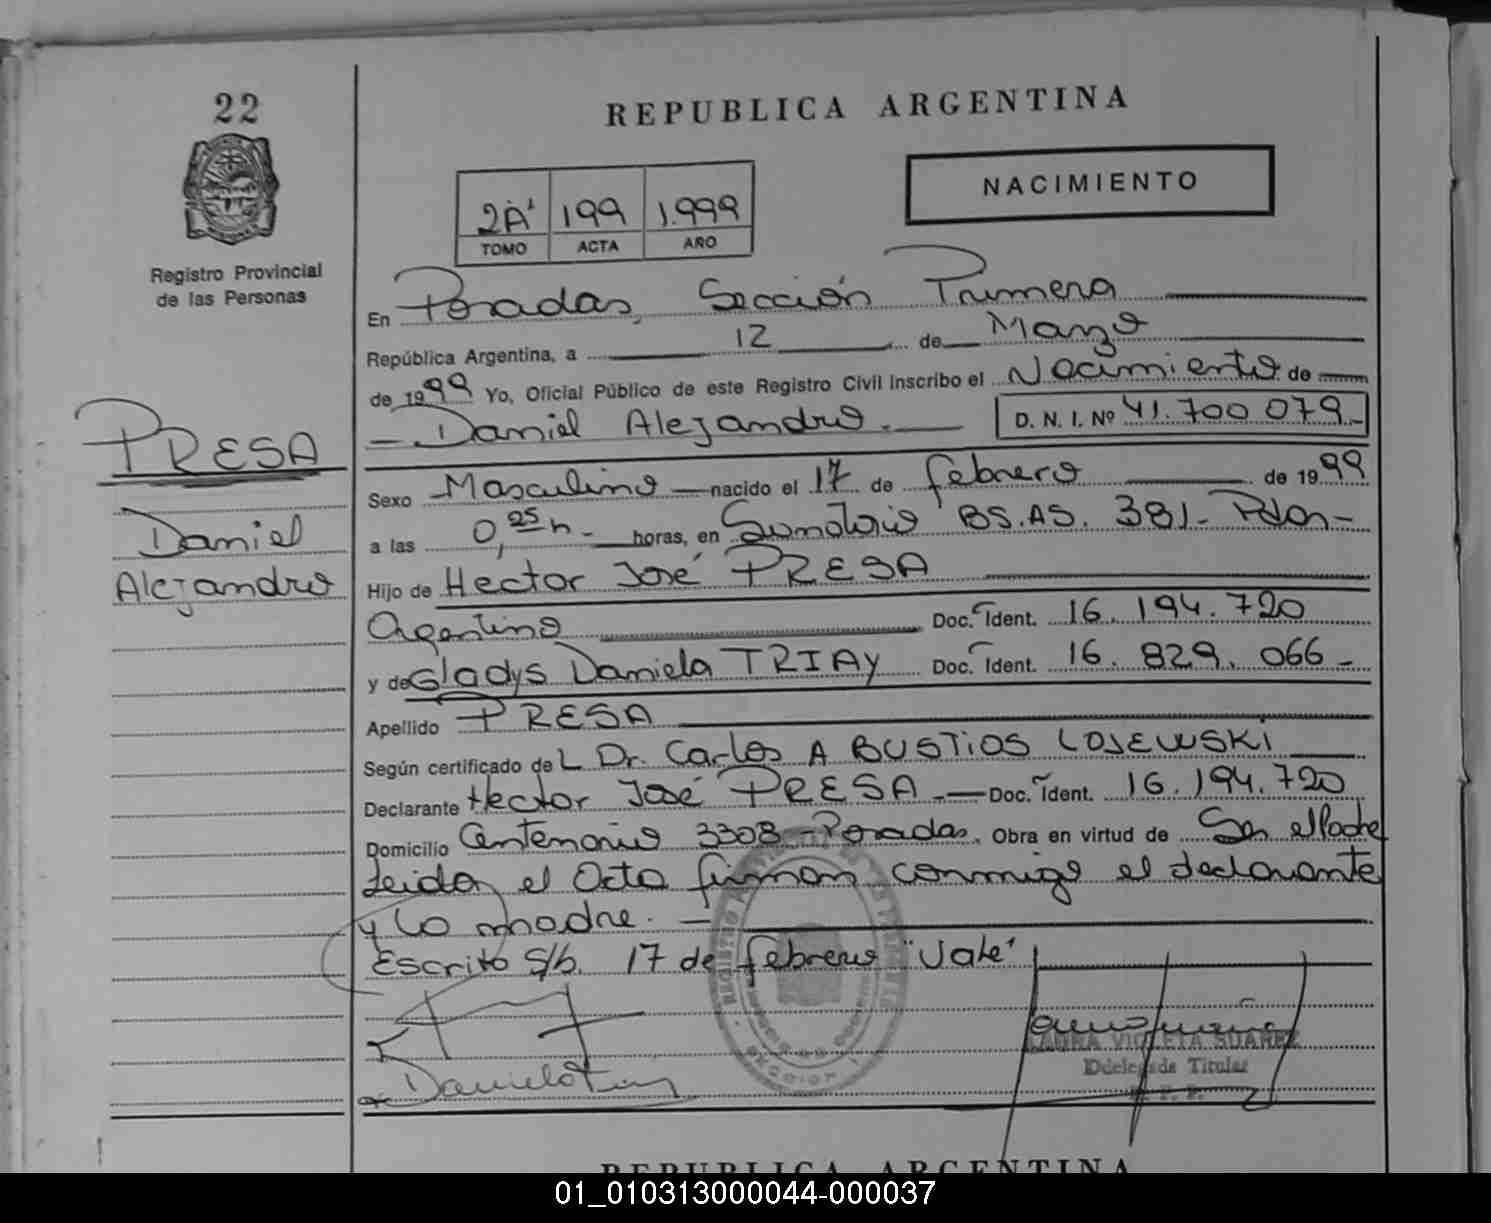 22
Registro Provincial
de las Personas
REPUBLICA ARGENTINA
NACIMIENTO
2A' 199 1.999
TOMO ACTA AÑO
En Posadas, Sección Primera
República Argentina, a 12 de Marzo
de 1999 Yo, Oficial Público de este Registro Civil Inscribo el Nacimiento de
Daniel Alejandro. D. N. I. Nº 41.700 079.-
PRESA
Daniel
Alejandro
Sexo Masculino nacido el 17 de febrero de 1999
a las 0,25 h - horas, en BS.AS. 381-
Hijo de Héctor José PRESA
Argentino Doc. Ident. 16.194.720
y de Gladys Daniela TRIAY Doc. Ident. 16.829.066-
Apellido PRESA
Según certificado de L Dr. Carlos A BUSTIOS LOJEWSKI
Declarante Hector José PRESA.- Doc. Ident. 16.194.720
Domicilio Centenario 3308-Posadas. Obra en virtud de Ser el Padre
Leida el Acta firman conmigo el declarante
y la madre.-
Escrito S/b. 17 de febrero "Vale"
LAURA VIOLETA SUAREZ
Delegada Titular
R. P. P.
REPUBLICA ARGENTINA
01_010313000044-000037